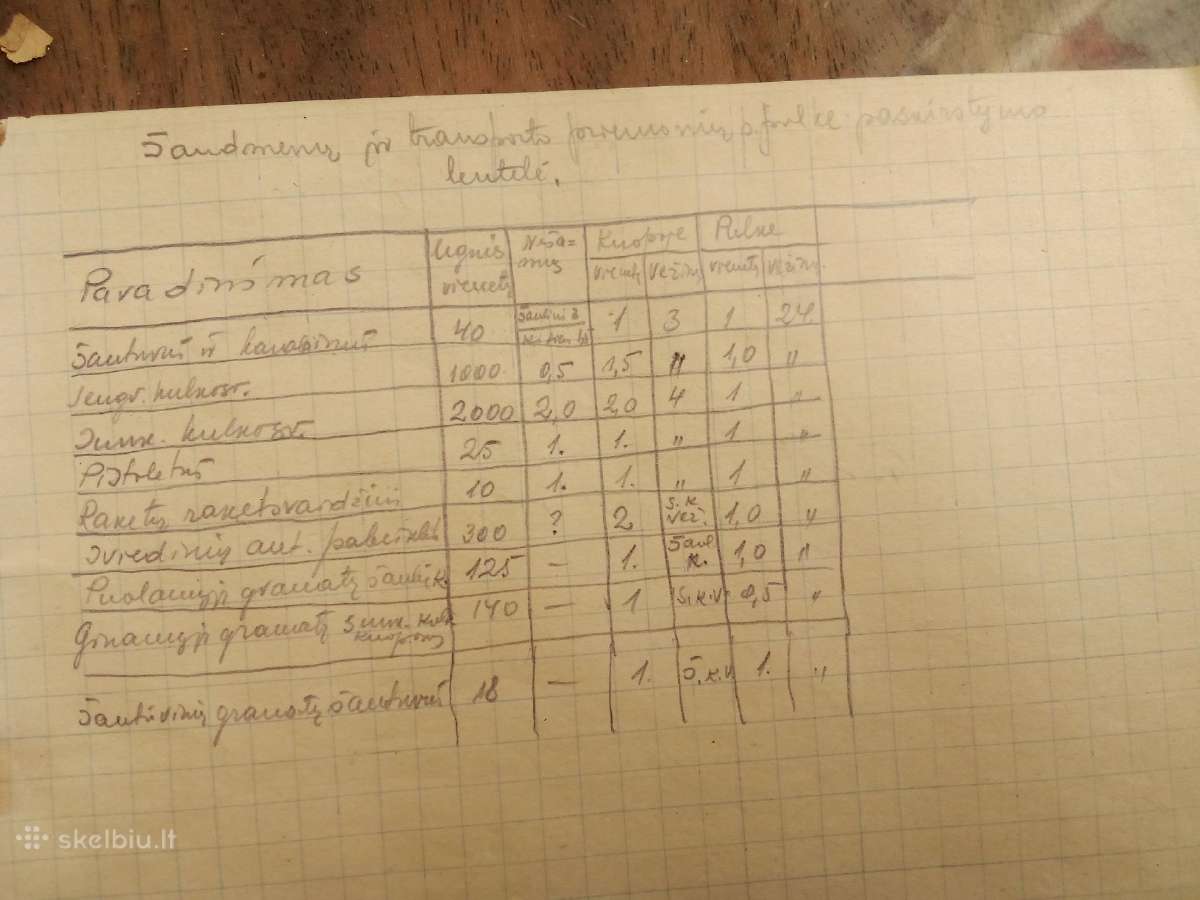 Šaudmenų ir transporto priemonių p. pulke paskirstymo
lentelė.
Pavadinimas Ugnies vienetų Neša=mų Kuopoje Pulke
vienetų vežimų vienetų vežimų
Šautuvui ir karabinui 40 1 3 1 24
Lengv. kulkosv. 1000 0,5 1,5 " 1,0 "
Sunk. kulkosv. 2000 2,0 20 4 1 "
Pistoletui 25 1. 1. " 1 "
Raketų raketovaidžiui 10 1. 1. " 1 "
300 ? 2 S.K vež. 1,0 "
Puolamųjų granatų šauli k. 125 — 1. Šaul k. 1,0 "
Ginamųjų granatų sunk. kulk kuopoms 140 — 1 Š.K.V. 0,5 "
Šautuvinių granatų šautuvui 18 — 1. Š.K.V 1. "
skelbiu.lt